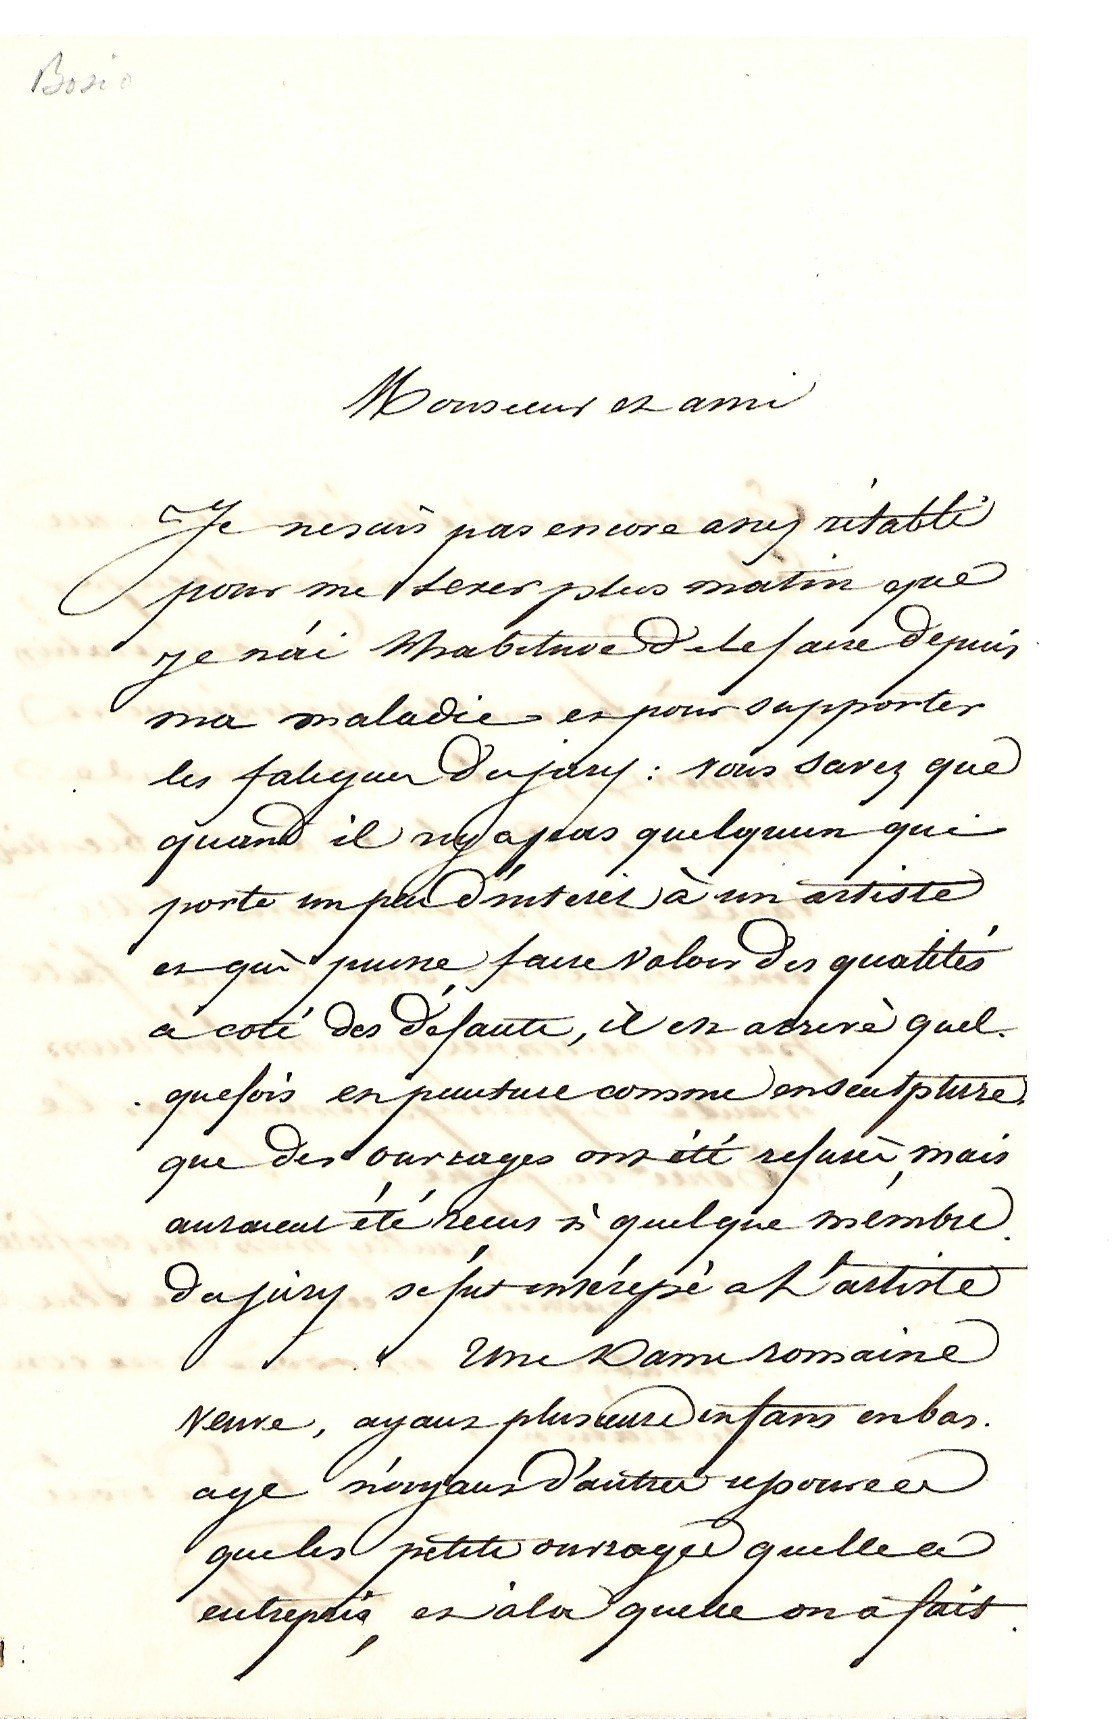 Bosio
Monsieur et ami
Je ne suis pas encore assez rétabli
pour me lever plus matin que
je n'ai l'habitude de le faire depuis
ma maladie et pour supporter
les fatigues du jury : vous savez que
quand il ny a pas quelquun qui
porte un peu d'interet à un artiste
et qui puisse faire valoir des qualités
a coté des défauts, il est arrivè quel-
quefois en peinture comme en sculpture
que des ouvrages ont été refusés, mais
auraient été recus si quelque mémbre
du jury se fut intéressé a l'artiste
Une Dame romaine
veuve, ayant plusieurs enfans en bas
age n'ayant d'autres ressources
que les petits ouvrages quelle a
entrepris, et
quelle on a fait